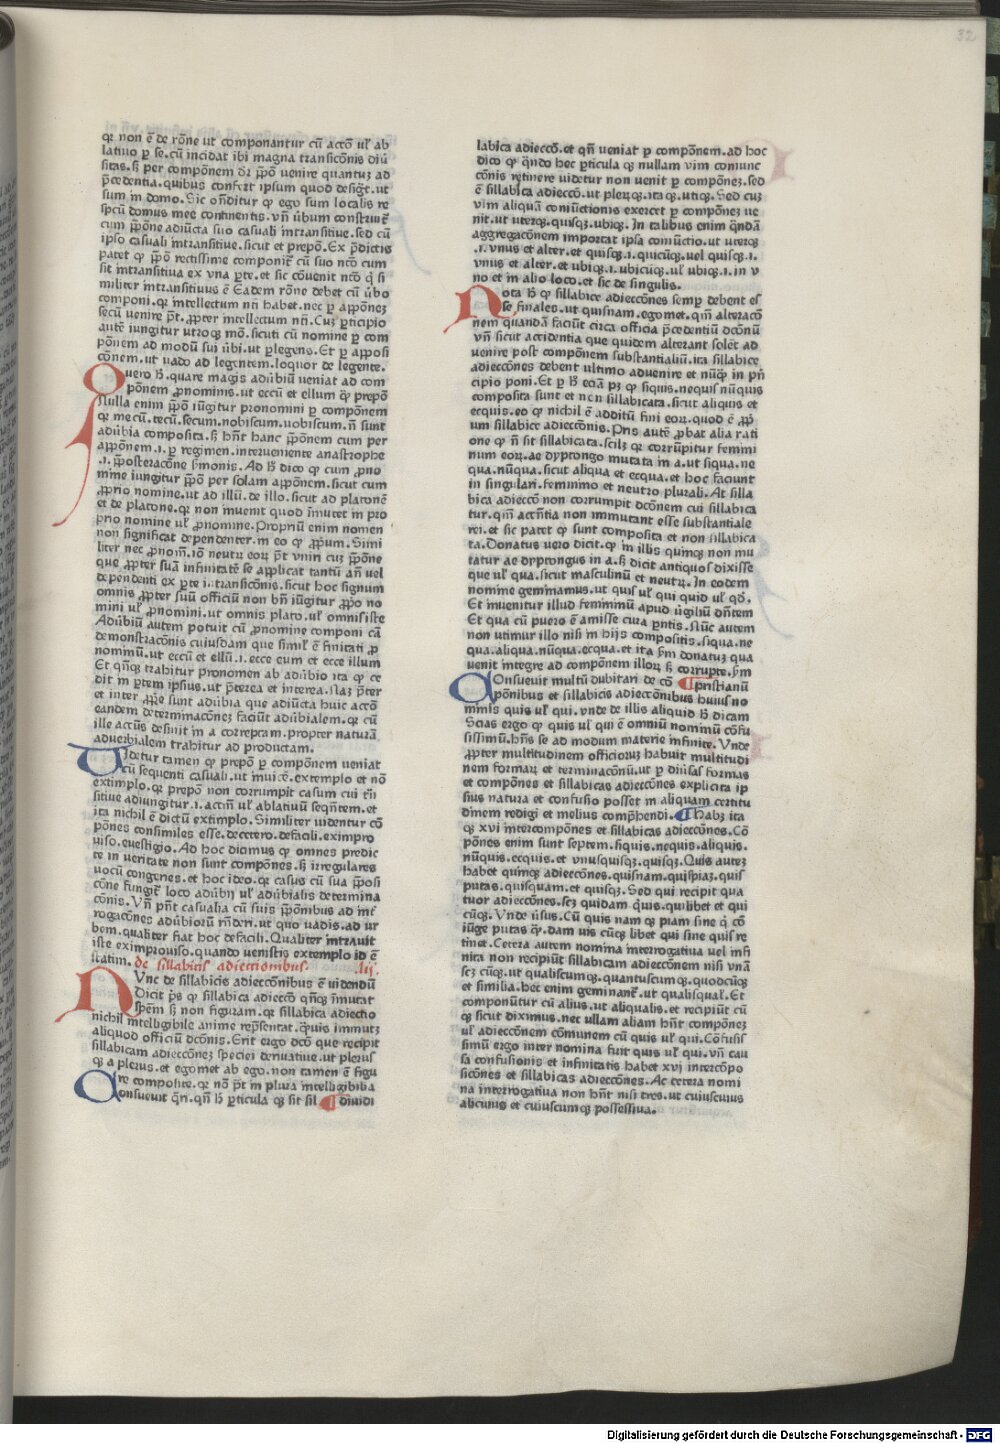 32
qꝛ non ē de rōne ut componantur cū accō ul' ab
latiuo p se. cū incidat ibi magna transicōnis diu
sitas. ꝫ per componem dr̄ ꝓpō uenire quantuꝫ ad
p̄cedentia. quibus confert ipsum quod desigt̄. ut
sum in domo. Sic on̄ditur ꝙ ego sum localis re
spcū domus mee continentis. vn̄ ūbum construit̄
cum p̄pōne adiūcta suo casuali intransitiue. sed cū
ipso casuali intransitiue. sicut et prepō. Ex p̄dictis
patet ꝙ p̄pō rectissime componit̄ cū suo nc̄o cum
sit intransitiua ex vna pte. et sic cōuenit nc̄o q̄ si
militer intransitiuus ē Eadem rōne debet cū ūbo
componi. qꝛ intellectum nn̄ habet. nec p apponeꝫ
secū uenire pt̄. ꝓpter intellectum nn̄. Cuꝫ pticipio
autē iungitur utroqꝫ mō. sicuti cū nomine p com
pōnem ad modū sui ūbi. ut plegens. Et p apposi
cōnem. ut uado ad legentem. loquor de legente.
Quero h̄. quare magis adūbiū ueniat ad com
pōnem ꝓnominis. ut eccū et ellum q̄ prepō
Nulla enim p̄pō iūgitur pronomini p componem
qꝛ mecū. tecū. secum. nobiscum. uobiscum. n̄ sunt
adūbia composita. ꝫ hn̄t hanc p̄pōnem cum per
appōnem. i. p regimen. interueniente anastrophe
.i. p̄posteracōne ſmonis. Ad h̄ dico ꝙ cum ꝓno
mine iungitur p̄pō per solam appōnem. sicut cum
ꝓprio nomine. ut ad illū. de illo. sicut ad platonē
et de platone. qꝛ non inuenit quod īmutet in pro
prio nomine ul' ꝓnomine. Propriū enim nomen
non significat dependenter. in eo ꝙ ꝓpum. Simi
liter nec ꝓnom̄. Iō neutꝝ eoꝝ pt̄ vniri cuꝫ p̄pōne
que ꝓpter suā infinitatē se applicat tantū an̄ uel
dependenti ex pte i. transicōnis. sicut hoc signum
omnis ꝓpter suū officiū non bn̄ iūgitur ꝓpo no
mini ul' ꝓnomini. ut omnis plato. ul' omnis iste
Adūbiū autem potuit cū ꝓnomine componi cā
demonstracōnis cuiusdam que simil' ē finitati ꝓ
nominū. ut eccū et ellū. i. ecce eum et ecce illum
Et qn̄qꝫ trahitur pronomen ab adūbio ita ꝙ ce
dit in ptem ipsius. ut p̄terea et interea. Naꝫ p̄ter
et inter ꝓpe sunt adūbia que adiūcta huic accō
eandem determinacōneꝫ faciūt adūbialem. qꝛ cū
ille accūs desinit in a correptam. propter naturā
aduerbialem trahitur ad productam.
Uidetur tamen ꝙ prepō p componem ueniat
cū sequenti casuali. ut inuicē. extemplo et nō
eximplo. qꝛ prepō non corrumpit casum cui tn̄
sitiue adiungitur. i. accm̄ ul' ablatiuū seqn̄tem. et
ita nichil ē dictū extimplo. Similiter uidentur cō
pōnes consimiles esse. decetero. defacili. eximpro
uiso. euestigio. Ad hoc dicimus ꝙ omnes predic
te in veritate non sunt compōnes. ꝫ irregulares
uocū congenes. et hoc ideo. qꝛ casus cū sua p̄posi
cōne fungit̄ loco adūbij ul' adūbialis determina
cōnis. Vn̄ pn̄t casualia cū suis p̄pōnibus ad int̄
rogacōnes adūbioꝝ rn̄deri. ut quo uadis. ad ur
bem. qualiter fiat hoc defacili. Qualiter intrauit
iste eximprouiso. quando uenistis extemplo id ē
statim. de sillabicis adiectionibus. .lij.
Nunc de sillabicis adieccōnibus ē uidendū
Dicit p̄s ꝙ sillabica adieccō qn̄qꝫ īmutat
sp̄em ꝫ non figuram. qꝛ sillabica adiectio
nichil intelligibile anime rep̄sentat. q̄uis immutꝫ
aliquod officiū dcōnis. Erit ergo dcō que recipit
sillabicam adieccōneꝫ speciei deriuatiue. ut plerus
qꝫ a plerus. et egomet ab ego. non tamen ē figu
re composite. qꝛ nō pt̄ in plura intelligibilia
Consueuit q̄ri. qn̄ h̄ pticula qꝫ sit sil ¶ diuidi
labica adieccō. et qn̄ ueniat p compōnem. ad hoc
dico ꝙ qn̄do hec pticula qꝫ nullam vim coniunc
cōnis retinere uidetur non uenit p compōneꝫ. sed
ē sillabica adieccō. ut plerꝫqꝫ. itaqꝫ. utiqꝫ. Sed cuꝫ
vim aliquā coniūctionis exercet p compōneꝫ ue
nit. ut uterqꝫ. quisqꝫ. ubiqꝫ. In talibus enim qn̄dā
aggregacōnem importat ipsa coniūctio. ut uterqꝫ
.i. vnus et alter. et quisqꝫ. i. quicūqꝫ. uel quisqꝫ. i.
vnus et alter. et ubiqꝫ. i. ubicūqꝫ. ul' ubiqꝫ. i. in v
no et in alio loco. et sic de singulis.
Nota h̄ ꝙ sillabice adieccōnes semp debent es
se finales. ut quisnam. egomet. qm̄ alteracō
nem quandā faciūt circa officia p̄cedentiū dcōnū
vn̄ sicut accidentia que quidem alterant solēt ad
uenire post compōnem substantialiū. ita sillabice
adieccōnes debent ultimo aduenire et nūqꝫ in pn̄
cipio poni. Et p h̄ eciā pꝫ ꝙ siquis. nequis nūquis
composita sunt et non sillabicata. sicut aliquis et
ecquis. eo ꝙ nichil ē additū fini eoꝝ. quod ē ꝓp̄
um sillabice adieccōnis. Pris autē ꝓbat alia rati
one ꝙ n̄ sit sillabicata. scilꝫ qꝛ corrūpitur femini
num eoꝝ. ae dyptongo mutata in a. ut siqua. ne
qua. nūqua. sicut aliqua et ecqua. et hoc faciunt
in singulari. feminino et neutro plurali. At silla
bica adieccō non corrumpit dcōnem cui sillabica
tur. qm̄ accn̄tia non immutant esse substantiale
rei. et sic patet ꝙ sunt composita et non sillabica
ta. Donatus uero dicit. ꝙ in illis quinqꝫ non mu
tatur ae dyptongus in a. ꝫ dicit antiquos dixisse
que ul' qua. sicut masculinū et neutꝝ. In eodem
nomine geminamus. ut quis ul' qui quid ul' qd̄.
Et inuenitur illud femininū apud ūgiliū dn̄tem
Et qua cū puero ē amisse cura pn̄tis. Nūc autem
non utimur illo nisi in hijs compositis. siqua. ne
qua. aliqua. nūqua. ecqua. et ita ſm donatuꝫ qua
uenit integre ad componem illoꝝ ꝫ corrupte. ſm
Consueuit multū dubitari de cō ¶ pristianū
ponibus et sillabicis adieccōnibus huius no
minis quis ul' qui. vnde de illis aliquid h̄ dicam
Scias ergo ꝙ quis ul' qui ē omniū nominū cōfu
sissimū. hn̄s se ad modum materie infinite. Vnde
ꝓpter multitudinem officioꝝ habuit multitudi
nem formaꝝ et terminacōnū. ut p diuīsas formas
et compōnes et sillabicas adieccōnes explicita ip
sius natura et confusio posset in aliquam certitu
dinem redigi et melius comp̄hendi. ¶ Habꝫ ita
qꝫ xvi intercompōnes et sillabicas adieccōnes. Cō
pōnes enim sunt septem. siquis. nequis. aliquis.
nūquis. ecquis. et vnusquisqꝫ. quisqꝫ. Quis autꝫ
habet quinqꝫ adieccōnes. quisnam. quispiaꝫ. quis
putas. quisquam. et quisqꝫ. Sed qui recipit qua
tuor adieccōnes. scꝫ quidam q̄uis. quilibet et qui
cūqꝫ. Vnde ūsus. Cū quis nam qꝫ piam sine q̄ cō
iūge putas q̄. dam uis cūqꝫ libet qui sine quis re
tinet. Cetera autem nomina interrogatiua uel infi
nita non recipiūt sillabicam adieccōnem nisi vnā
scꝫ cūqꝫ. ut qualiscumqꝫ. quantuscumqꝫ. quodcūqꝫ
et similia. hec enim geminant̄. ut qualisqual'. Et
componūtur cū alius. ut aliqualis. et recipiūt cū
qꝫ sicut diximus. nec ullam aliam hn̄t componeꝫ
ul' adieccōnem cōmunem cū quis ul' qui. Cōfusis
simū ergo inter nomina fuit quis ul' qui. vn̄ cau
sa confusionis et infinitatis habet xvj intercōpo
sicōnes et sillabicas adieccōnes. Ac cetera nomi
na interrogatiua non hn̄t nisi tres. ut cuiuscuius
alicuius et cuiuscumqꝫ possessiua.
Digitalisierung gefördert durch die Deutsche Forschungsgemeinschaft - DFG